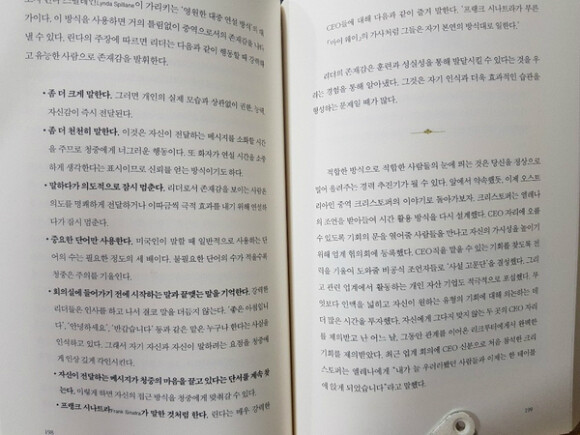 가리키는 '영원한 대중 연설 방식'의 대
가이다. 이 방식을 사용하면 거의 틀림없이 중역으로서의 존재감을 나타
낼 수 있다. 린다의 주장에 따르면 리더는 다음과 같이 행동할 때 강력하
고 유능한 사람으로 존재감을 발휘한다.
• 좀 더 크게 말한다. 그러면 개인의 실제 모습과 상관없이 권위, 능력,
자신감이 즉시 전달된다.
• 좀 더 천천히 말한다. 이것은 자신이 전달하는 메시지를 소화할 시간
을 주므로 청중에게 너그러운 행동이다. 또 화자가 연설 시간을 소중
하게 생각한다는 표시이므로 신뢰를 얻는 방식이기도 하다.
• 말하다가 의도적으로 잠시 멈춘다. 리더로서 존재감을 보이는 사람은
의도를 명쾌하게 전달하거나 이따금씩 극적 효과를 내기 위해 연설하
다가 잠시 멈춘다.
• 중요한 단어만 사용한다. 미국인이 말할 때 일반적으로 사용하는 단
어의 수는 필요한 정도의 세 배이다. 불필요한 단어의 수가 적을수록
청중은 주의를 기울인다.
• 회의실에 들어가기 전에 시작하는 말과 끝맺는 말을 기억한다. 강력한
리더들은 인사를 하고 나서 결코 말을 더듬지 않는다. '좋은 아침입니
다', '안녕하세요', '반갑습니다' 등과 같은 말은 누구나 한다는 사실을
인식하고 있다. 그래서 자기 자신과 자신이 말하려는 요점을 청중에
게 인상 깊게 각인시킨다.
• 자신이 전달하는 메시지가 청중의 마음을 끌고 있다는 단서를 계속 찾
는다. 이렇게 하면 자신의 접근 방식을 청중에게 맞춰갈 수 있다.
• 프랭크 시나트라Frank Sinatra가 말한 것처럼 한다. 린다는 매우 강력한
198
CEO들에 대해 다음과 같이 즐겨 말한다. "프랭크 시나트라가 부른
『마이 웨이』의 가사처럼 그들은 자기 본연의 방식대로 일한다."
리더의 존재감은 훈련과 성실성을 통해 발달시킬 수 있다는 것을 우
리는 경험을 통해 알아냈다. 그것은 자기 인식과 더욱 효과적인 습관을
형성하는 문제일 때가 많다.
적합한 방식으로 적합한 사람들의 눈에 띄는 것은 당신을 정상으로
밀어 올려주는 경력 추진기가 될 수 있다. 앞에서 약속했듯, 이제 오스트
리아인 중역 크리스토퍼의 이야기로 돌아가보자. 크리스토퍼는 엘레나
의 조언을 받아들여 시간 활용 방식을 다시 설계했다. CEO 자리에 오를
수 있도록 기회의 문을 열어줄 사람들을 만나고 자신의 가시성을 높이기
위해 업계 협의회에 등록했다. CEO직을 맡을 수 있는 기회를 찾도록 전
력을 기울여 도와줄 비공식 조언자들로 '사설 고문단'을 결성했다. 그리
고 관련 업계에서 활동하는 개인 자산 기업도 적극적으로 포섭했다. 무
엇보다 인맥을 넓히고 자신이 원하는 유형의 기회에 대해 의논하는 데
더 많은 시간을 투자했다. 자신에게 그다지 맞지 않는 두 곳의 CEO 자리
를 제의받고 난 어느 날, 그동안 관계를 이어온 리크루터에게서 완벽한
기회를 제의받았다. 최근 업계 회의에 CEO 신분으로 처음 참석한 크리
스토퍼는 엘레나에게 "내가 늘 우러러봤던 사람들과 이제는 한 테이블
에 앉게 되었습니다"라고 말했다.
199